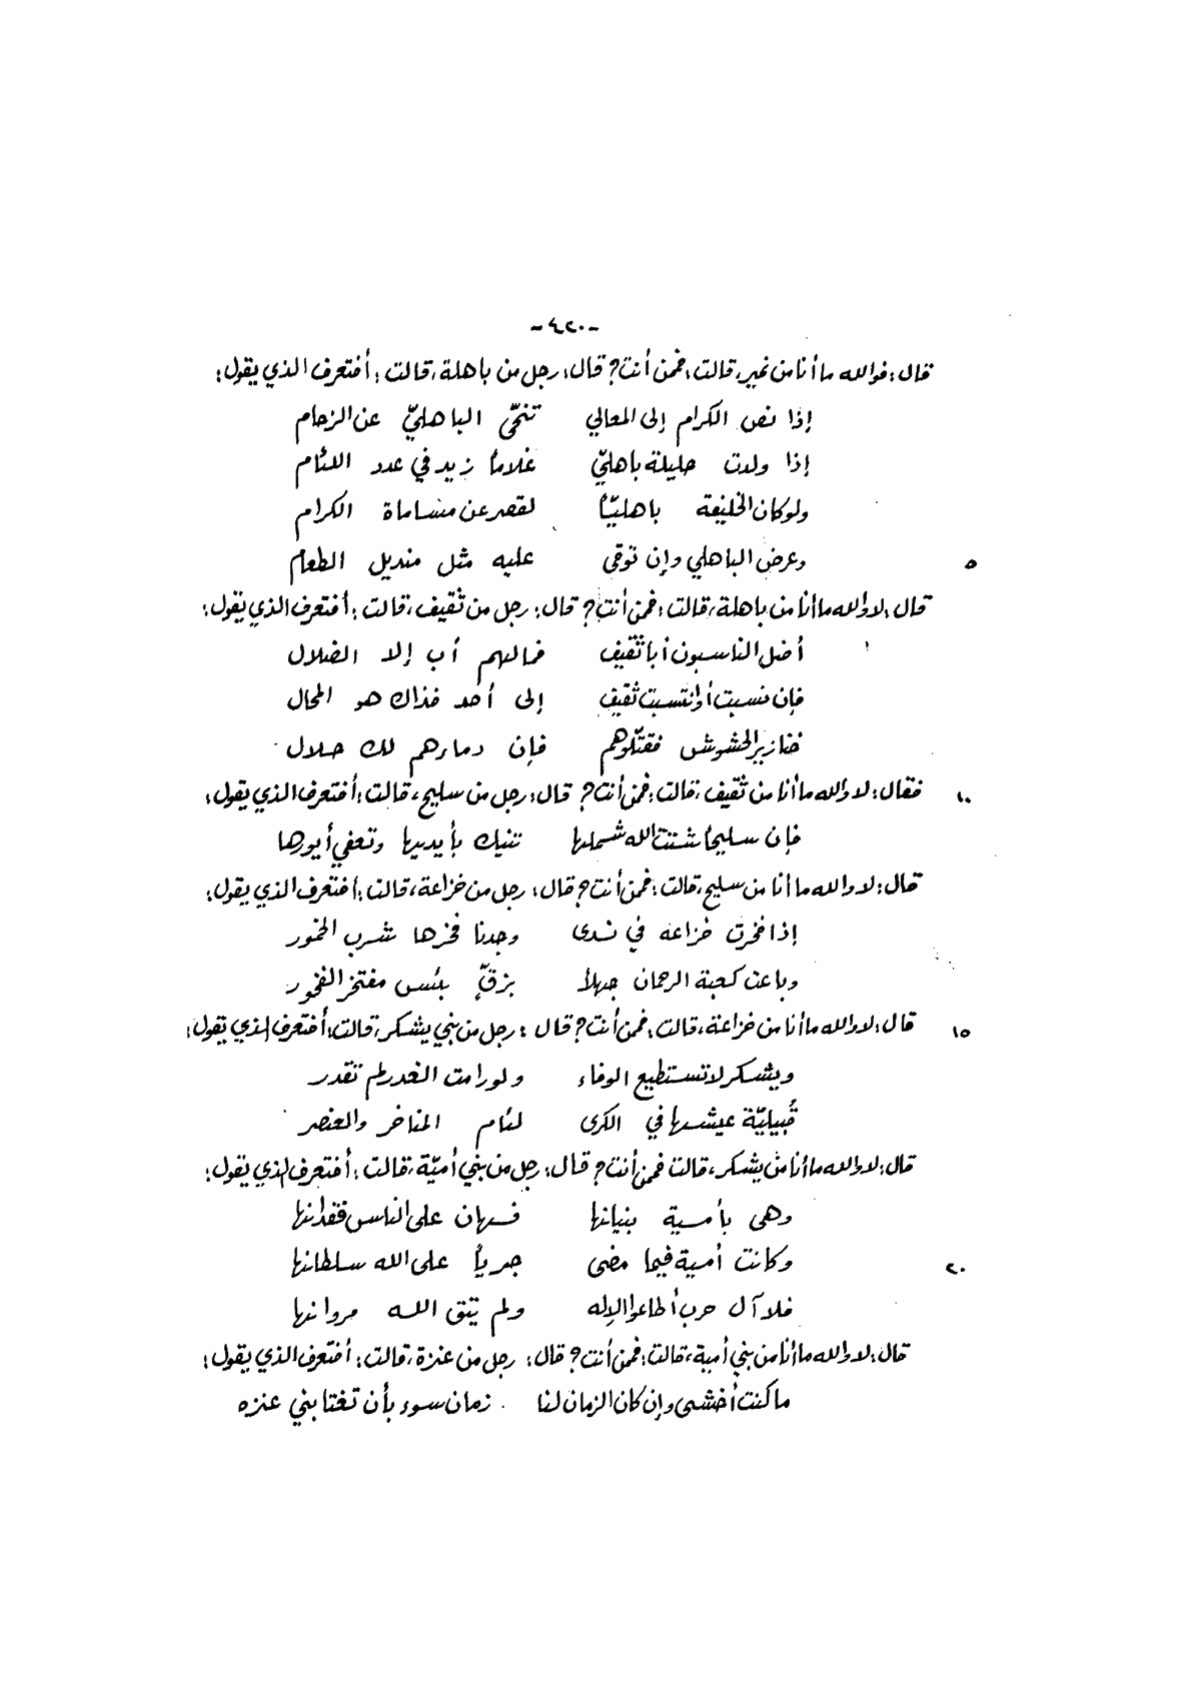 -٤٢٠-
قال: فوالله ما أنا من نمير، قالت: فمن أنت؟ قال: رجل من باهلة، قالت: أفتعرف الذي يقول:
إذا نص الكرام إلى المعالي تنحّى الباهليّ عن الزحام
إذا ولدت حليلة باهليّ غلاماً زيد في عدد اللئام
ولو كان الخليفة باهليّاً لقصر عن مساماة الكرام
٥ وعرض الباهلي وإن توقى عليه مثل منديل الطعام
قال: لا والله ما أنا من باهلة، قالت: فمن أنت؟ قال: رجل من ثقيف، قالت: أفتعرف الذي يقول:
أضل الناسبون أبا ثقيف فمالهم أب إلا الضلال
فإن نسبت أو انتسبت ثقيف إلى أحد فذاك هو المحال
خنازير الحشوش فقتّلوهم فإن دماءهم لك حلال
١٠ فقال: لا والله ما أنا من ثقيف، قالت: فمن أنت؟ قال: رجل من سليح، قالت: أفتعرف الذي يقول:
فإن سليحاً شتت الله شملها تنيك بأيديها وتعفي أيورها
قال: لا والله ما أنا من سليح، قالت: فمن أنت؟ قال: رجل من خزاعة، قالت: أفتعرف الذي يقول:
إذا فخرت خزاعة في ندى وجدنا فخرها شرب الخمور
وباعت كعبة الرحمان جهلاً بزقّ بئس مفتخر الفخور
١٥ قال: لا والله ما أنا من خزاعة، قالت: فمن أنت؟ قال: رجل من بني يشكر، قالت: أفتعرف الذي يقول:
ويشكر لا تستطيع الوفاء ولو رامت الغدر لم تقدر
قُبيليّة عيشها في الكرى لئام المناخر والعنصر
قال: لا والله ما أنا من يشكر، قالت فمن أنت؟ قال: رجل من بني أميّة، قالت: أفتعرف الذي يقول:
وهى بأمية بنيانها فهان على الناس فقدانها
٢٠ وكانت أمية فيما مضى جرياً على الله سلطانها
فلا آل حرب أطاعوا الإله ولم يتق الله مروانها
قال: لا والله ما أنا من بني أمية، قالت: فمن أنت؟ قال: رجل من عنزة، قالت: أفتعرف الذي يقول:
ما كنت أخشى وإن كان الزمان لنا زمان سوء بأن تغتابني عنزه